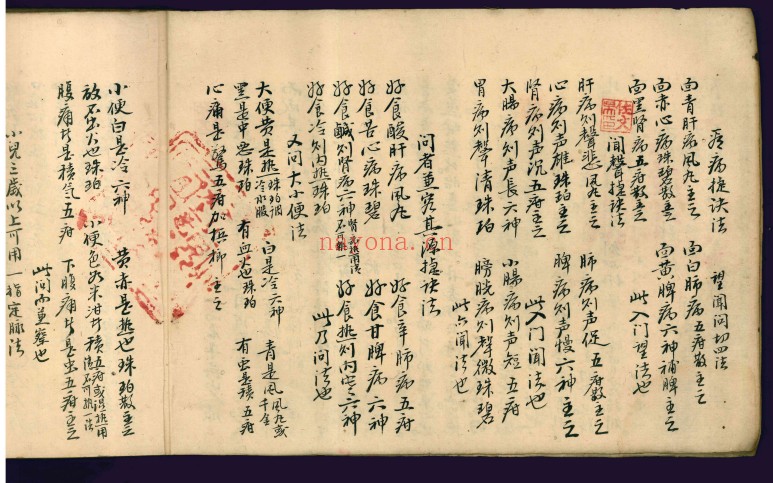 看病捷訣法　望聞問切四法
面青肝病風丸主之　面白肺病五府散主之
面赤心病珠碧散主之　面黃脾病六神補脾主之
面黑腎病五府散主之　此入門望法也
聞聲捷訣法
肝病則聲悲風丸主之　肺病則声促五府散主之
心病則声雄珠珀主之　脾病則声慢六神主之
腎病則声沉五府主之　此入門聞法也
大腸病則声長六神　小腸病則声短五府
胃病則聲清珠珀　膀胱病則聲微珠碧
此六聞法也
問者並究其源捷訣法
好食酸肝病風丸　好食辛肺病五府
好食苦心病珠碧　好食甘脾病六神
好食鹹則腎病六神　好食熱則內寒六神
好食冷則內熱珠珀　此乃問法也
又問大小便法
大便黄是熱珠珀調冷水服　白是冷六神　青是風風丸或千金
黑是中也珠珀　有血也珠珀　有虫是積五府
心痛是驚五府加槟榔主之
小便白是冷六神　黄赤是熱也珠珀散主之
放不出火也珠珀　小便色如米泔者積
腹痛者是積气五府　下腹痛者是虫五府主之
此問而並察也
小兒三歲以上可用一指定脉法
nayona.cn